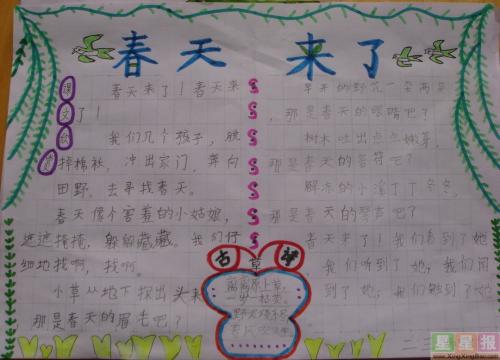 春天来了
课文欣赏
春天来了！春天来
了！
我们几个孩子，脱
掉棉袄，冲出家门，奔向
田野，去寻找春天。
春天像个害羞的小姑娘，
遮遮掩掩，躲躲藏藏。我们仔
细地找啊，找啊。
小草从地下探出头来，
那是春天的眉毛吧？
早开的野花一朵两朵
，那是春天的眼睛吧？
树木吐出点点嫩芽，
那是春天的音符吧？
解冻的小溪丁丁冬冬，
那是春天的琴声吧？
春天来了！我们看到了她
，我们听到了她，我们闻
到了她，我们触到了她
古草诗
离离原上草，
一岁一枯荣。
野火烧不尽，
春风吹又生。
星星报
www.XingXingBao.com